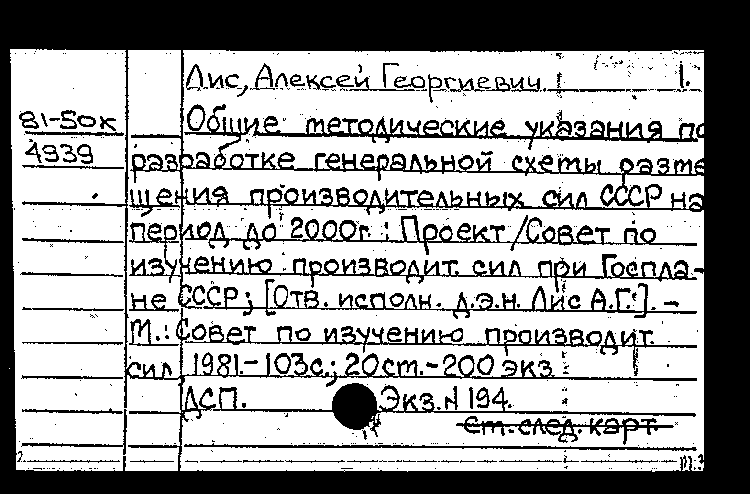 Лис, Алексей Георгиевич 1.
81-50к Общие методические указания по
4939 разработке генеральной схемы разме
щения производительных сил СССР на
период до 2000г.: Проект/Совет по
изучению производит. сил при Госпла-
не СССР; [Отв. исполн. д.э.н. Лис А.Г.]. –
М.: Совет по изучению производит.
сил, 1981.-103с.; 20см.-200 экз
ДСП. Экз.N 194.
см. след. карт